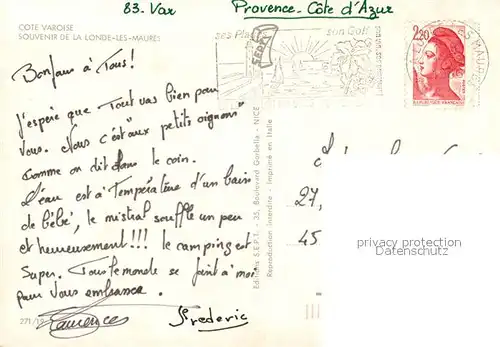 83. Var
Provence-Côte d'Azur
COTE VAROISE
SOUVENIR DE LA LONDE-LES-MAURES
ses Pla
son Golf
2,20
REPUBLIQUE FRANÇAISE
Bonjour à Tous!
J'espère que Tout vas bien pour
Vous. Nous c'est "aux petits oignons"
comme on dit dans le coin.
L'eau est à Température d'un bain
de bébé, le mistral souffle un peu
et heureusement!!! le camping est
Super. Tous le monde se joint à moi
pour Vous embrasse.
Laurence
Frederic
271/19
Editions S.E.P.T. - 35, Boulevard Gorbella - NICE
Reproduction interdite - Imprimé en Italie
27,
45
privacy protection
Datenschutz